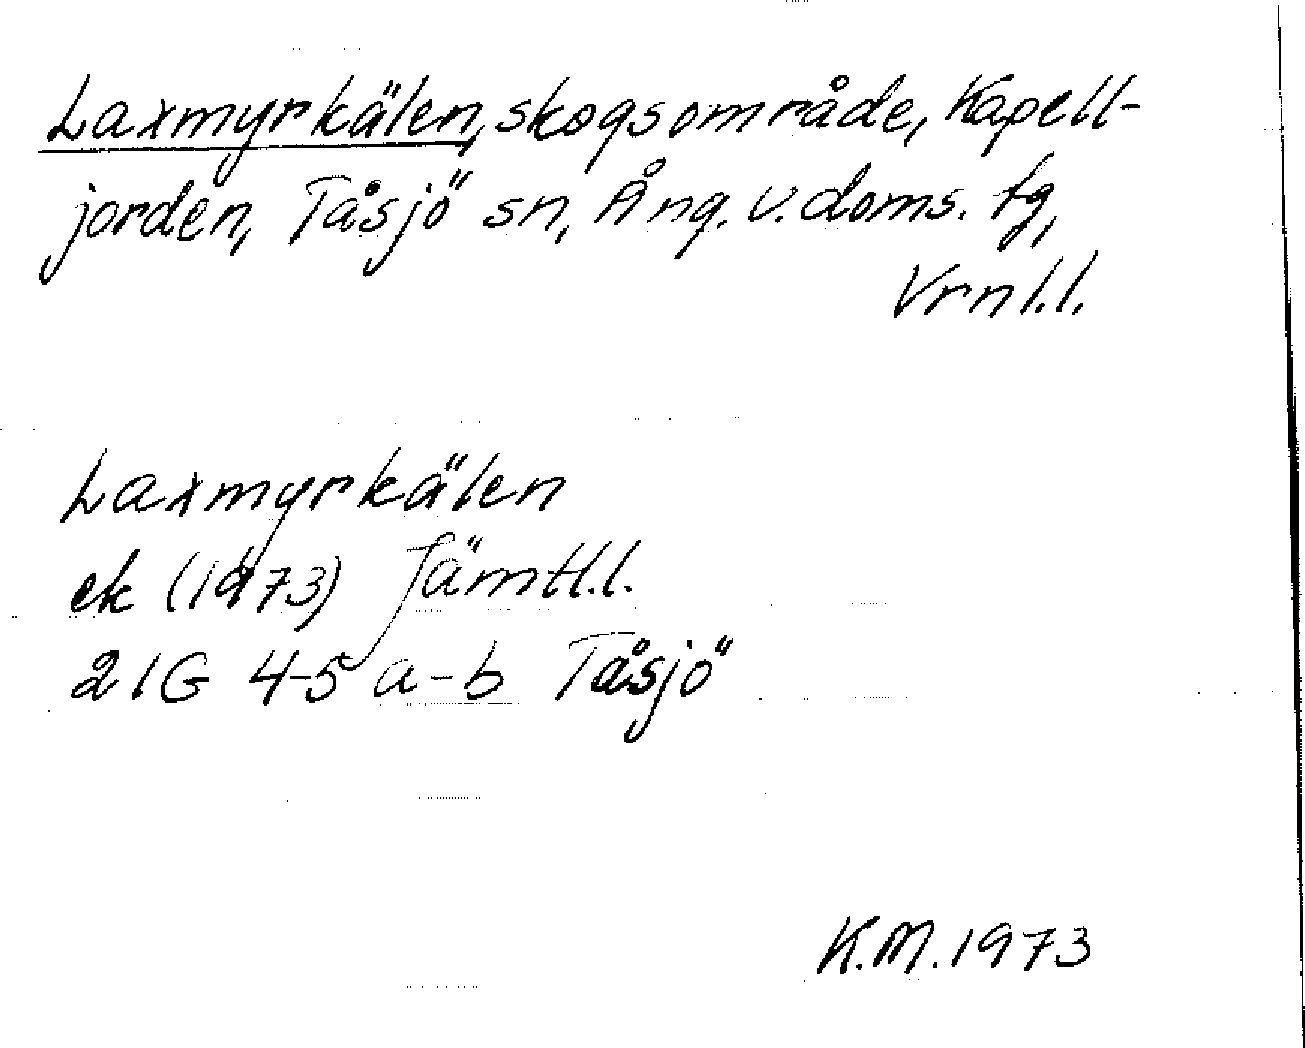 Laxmyrkälen, skogsområde, Kapell-
jorden, Tåsjö sn, Ång. v. doms. tg,
Vrnl.l.
Laxmyrkälen
ek (1973) Jämtl.l.
21G 4-5 a-b Tåsjö
K.M. 1973